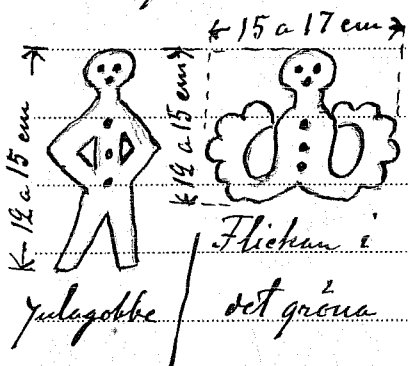 15 a 17 cm
12 a 15 cm
12 a 15 cm
Julagobbe
Flickan i
det gröna